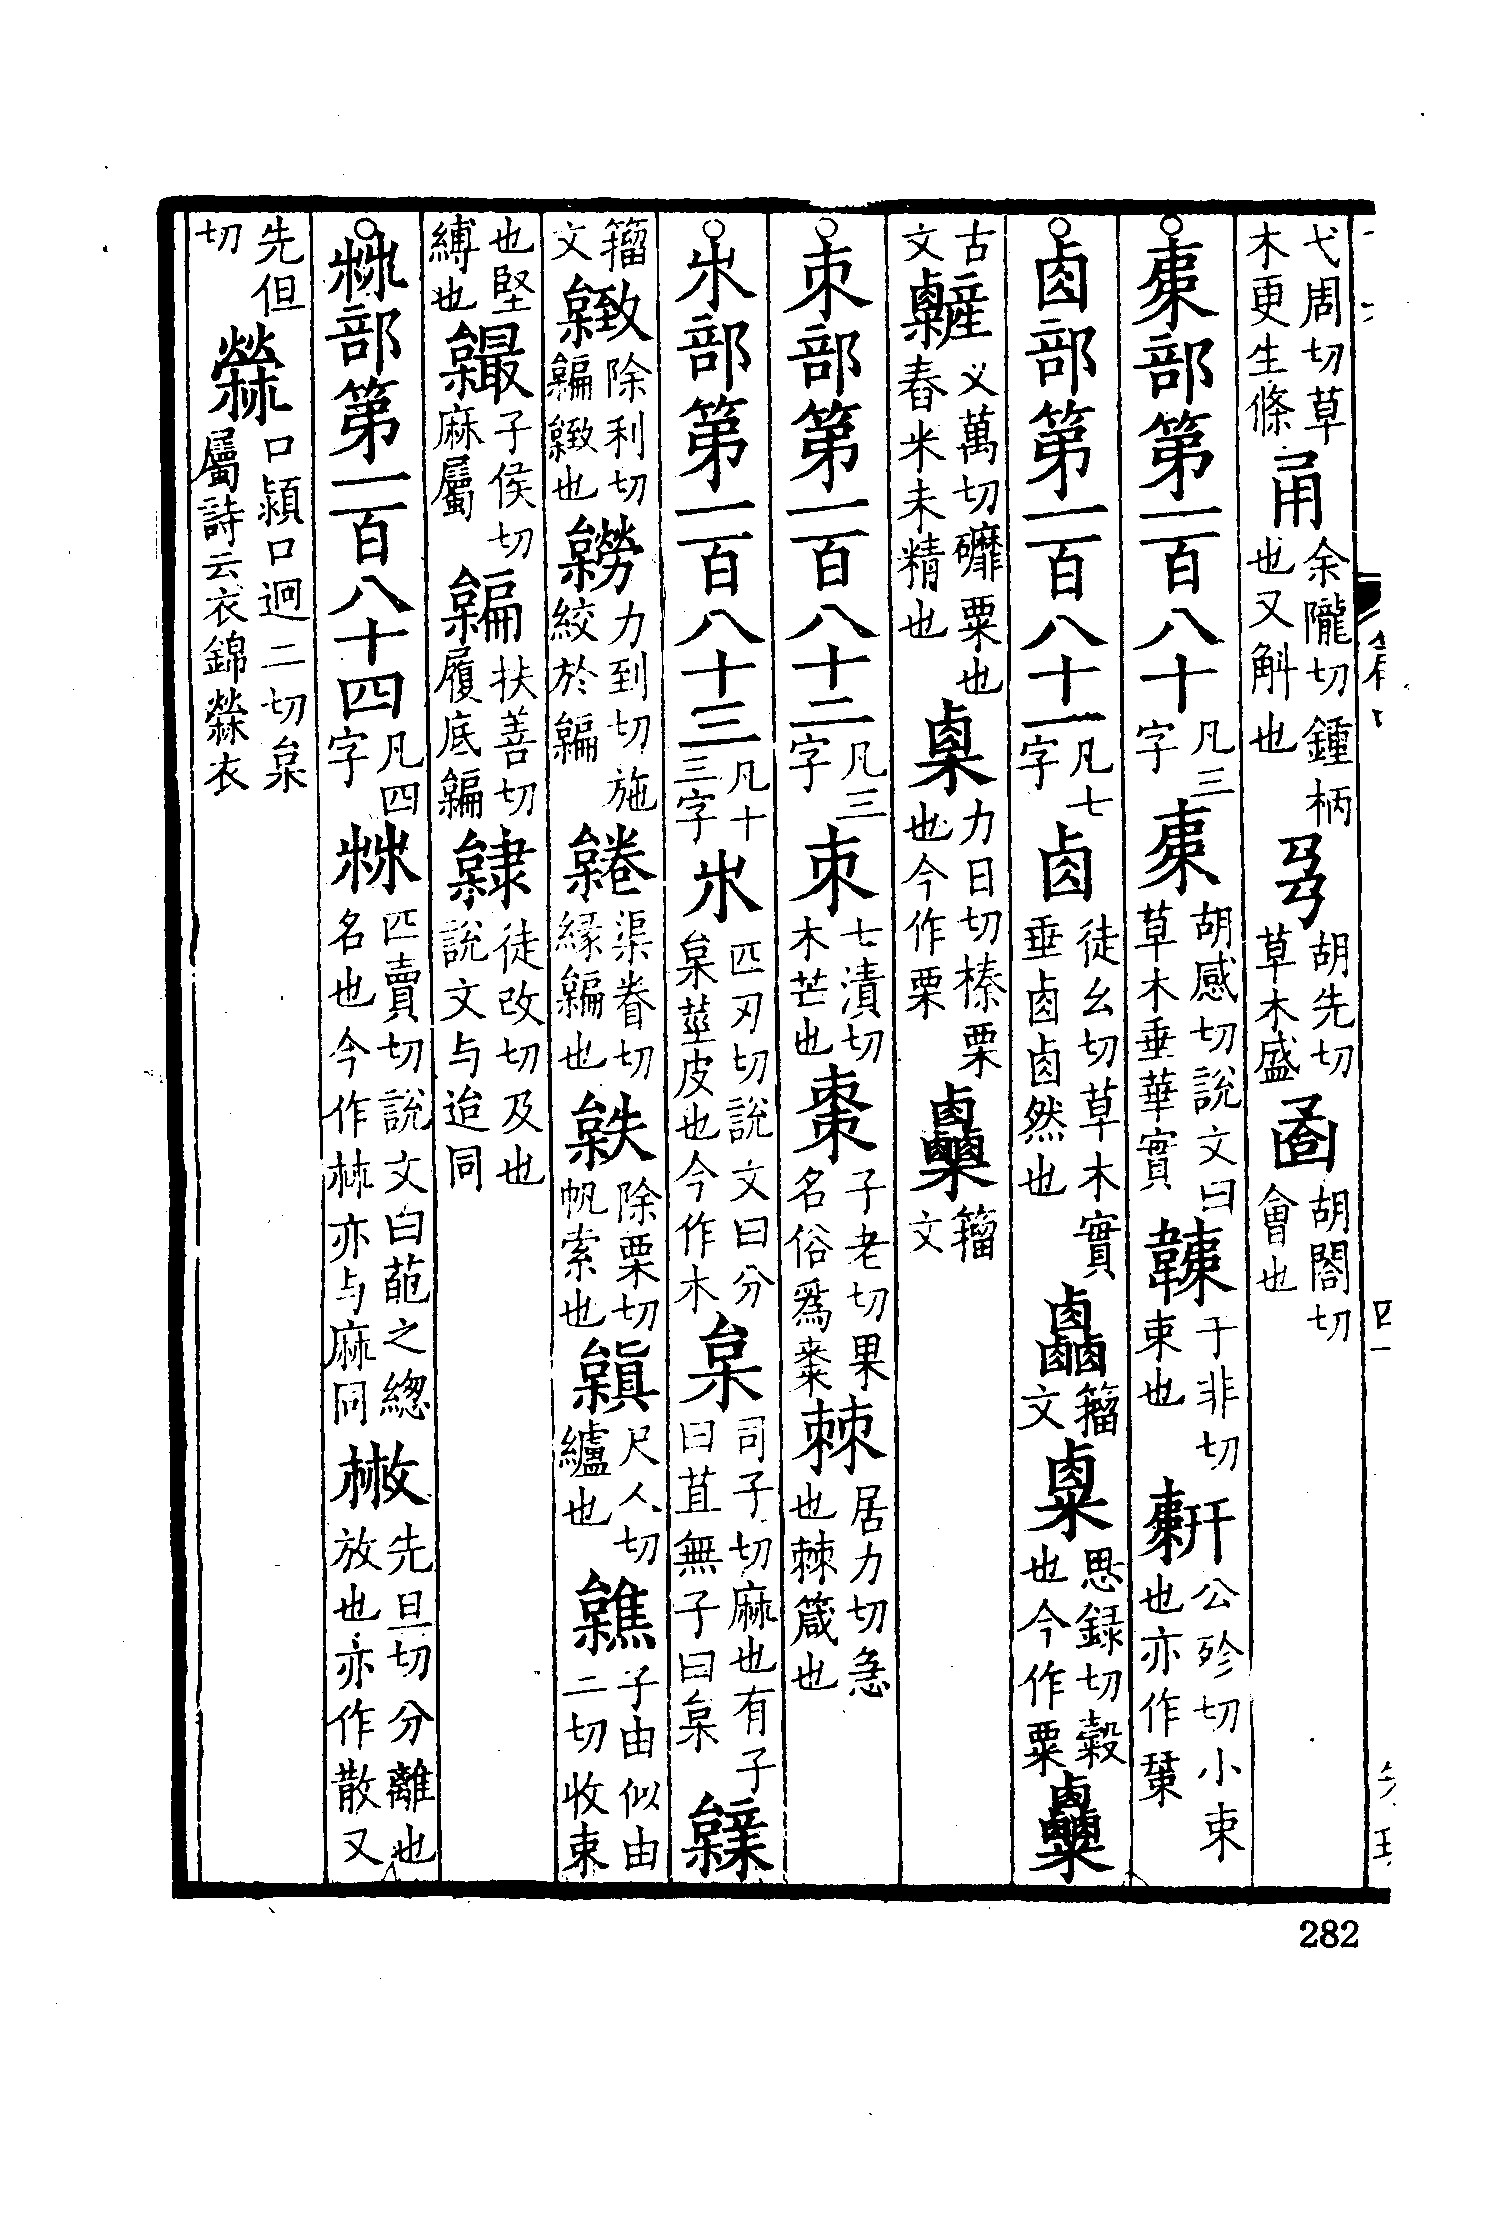 弋周切草木更生條甬余隴切鍾柄也又斛也胡先切草木盛圅胡閤切會也
𣐺部第一百八十凡三字𣐺胡感切說文曰草木垂華實𣠄于非切束也公殄切小束也亦作𥠹
卤部第一百八十一凡七字卤徒幺切草木實垂卤卤然也𠧪籀文思録切穀也今作粟
古文义萬切䃺粟也舂米未精也㮚力日切榛栗也今作栗籀文
朿部第一百八十二凡三字朿七漬切木芒也棗子老切果名俗爲棘居力切急也棘箴也
𣎳部第一百八十三凡十三字𣎳匹刃切說文曰分枲莖皮也今作木枲司子切麻也有子曰苴無子曰枲
籀文除利切緻也力到切施絞於編渠眷切緣編也除栗切帆索也尺人切纑也子由似由二切收束
也堅縛也子侯切麻屬扶善切履底編徒改切及也說文与迨同
𣏟部第一百八十四凡四字𣏟匹賣切說文曰葩之緫名也今作𣏟亦与麻同㪔先旦切分離也放也亦作散又
先但切檾口穎口迥二切枲屬詩云衣錦檾衣
282